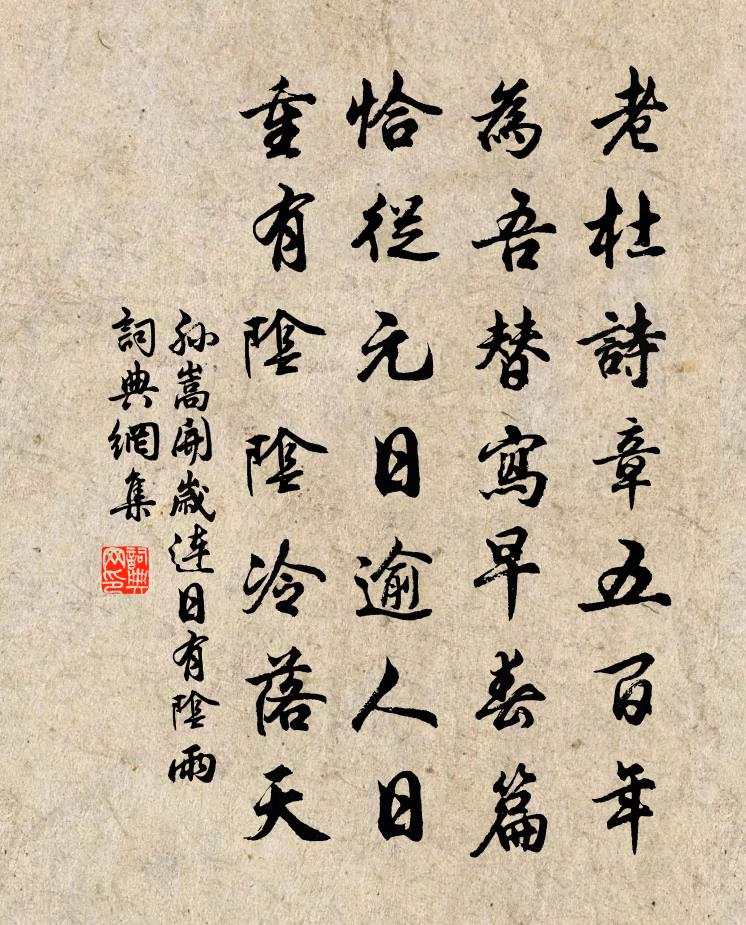 老杜詩章五百年
為吾替寫早春篇
恰從元日逾人日
重有陰陰冷落天
孫嵩開歲連日有陰雨
詞典網集
詞典
网印